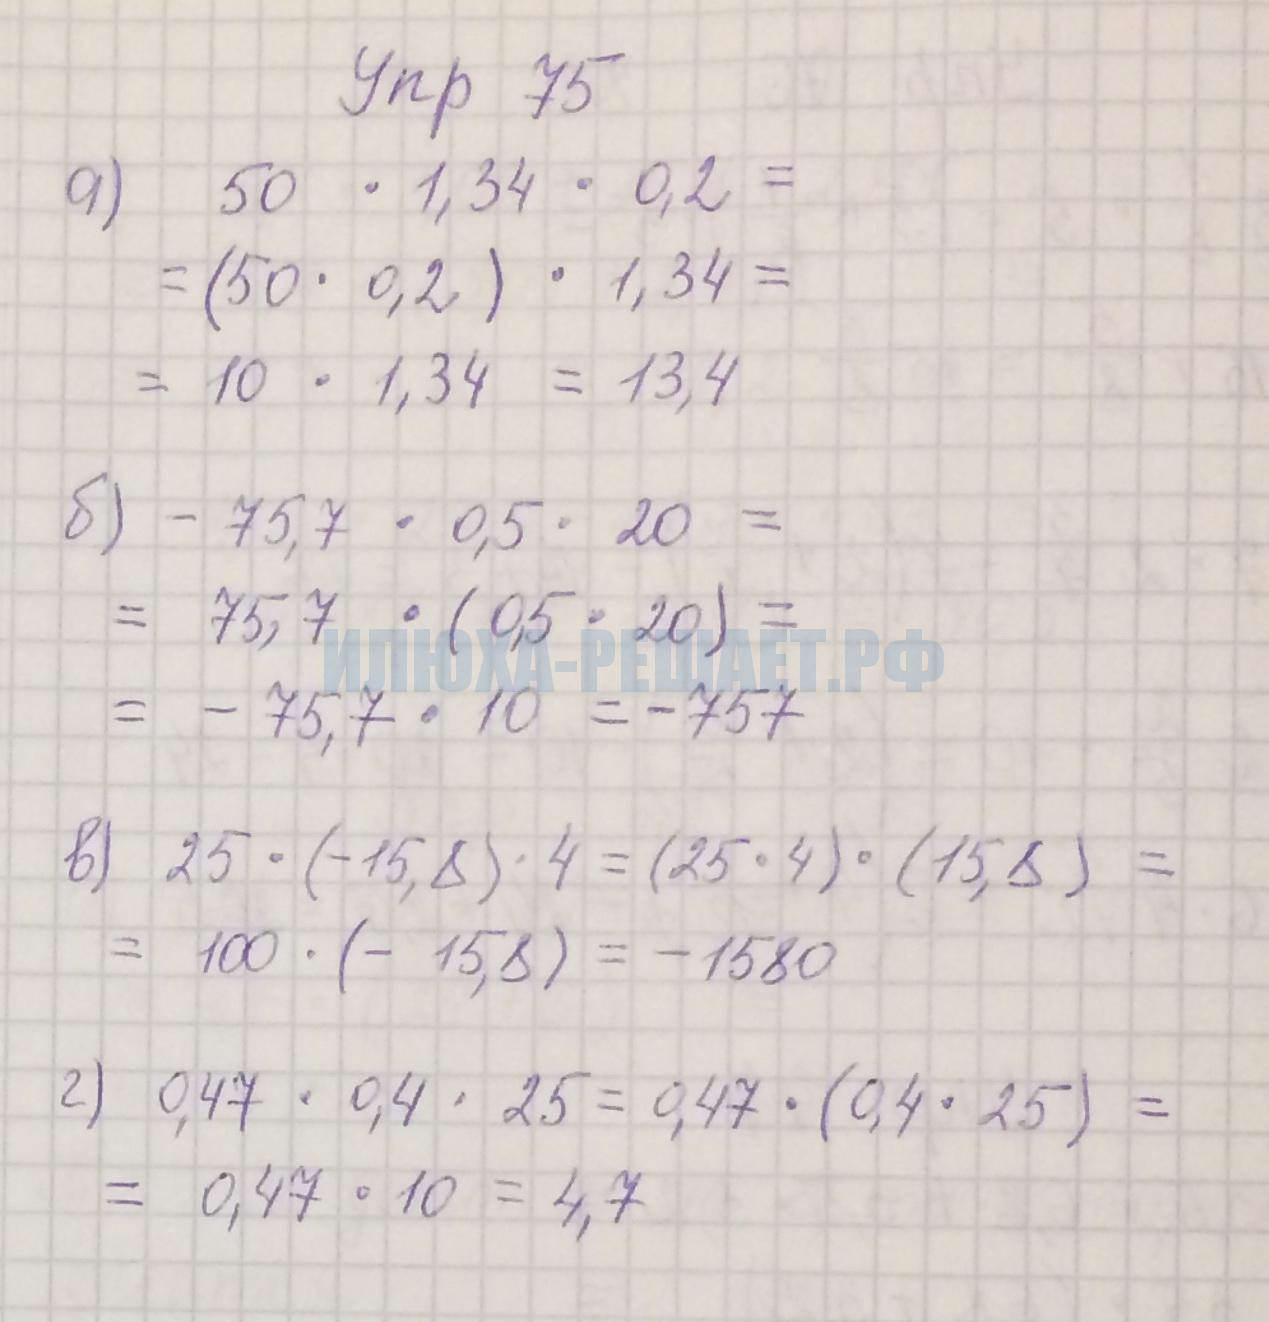 Упр 75
а) 50 · 1,34 · 0,2 =
= (50 · 0,2) · 1,34 =
= 10 · 1,34 = 13,4
б) - 75,7 · 0,5 · 20 =
= 75,7 · (0,5 · 20) =
ИЛЮХА-РЕШАЕТ.РФ
= - 75,7 · 10 = -757
в) 25 · (-15,8) · 4 = (25 · 4) · (15,8) =
= 100 · (- 15,8) = -1580
г) 0,47 · 0,4 · 25 = 0,47 · (0,4 · 25) =
= 0,47 · 10 = 4,7